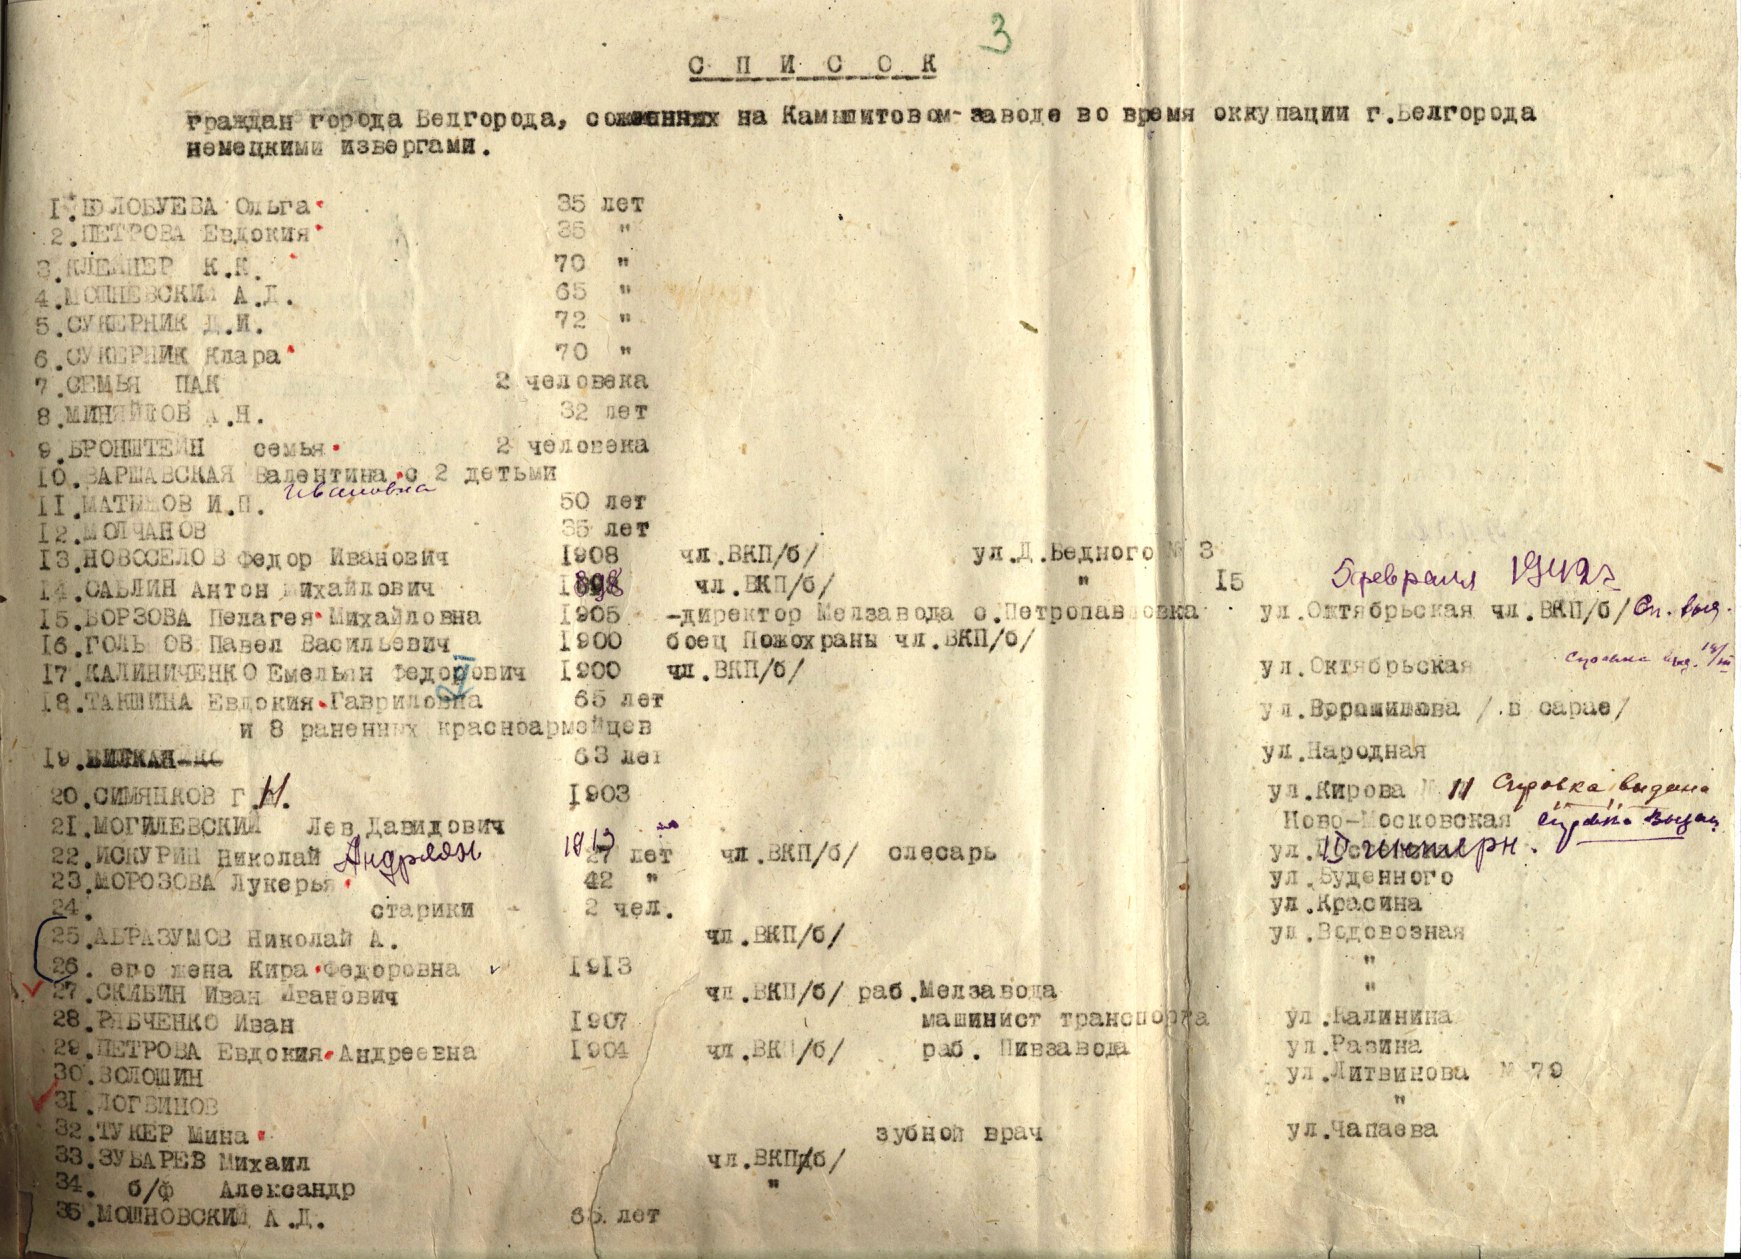 3
С П И С О К
граждан города Белгорода, сожженных на Камышитовом-заводе во время оккупации г.Белгорода
немецкими извергами.
1. ЮЛОБУЕВА Ольга 35 лет
2. ПЕТРОВА Евдокия 35 "
3. КЛЕЙНЕР К.К. 70 "
4. МОШНЕВСКИЙ А.Д. 65 "
5. СУКЕРНИК Д.И. 72 "
6. СУКЕРНИК Клара 70 "
7. СЕМЬЯ ПАК 2 человека
8. МИНЯЙЛОВ А.Н. 32 лет
9. БРОНШТЕЙН семья 2 человека
10. ВАРШАВСКАЯ Валентина с 2 детьми
Ивановна
11. МАТЫКОВ И.П. 50 лет
12. МОЛЧАНОВ 35 лет
13. НОВОСЕЛОВ Федор Иванович 1908 чл.ВКП/б/ ул.Д.Бедного № 3
14. САБЛИН Антон Михайлович 1898 чл.ВКП/б/ " 15 5 февраля 1942г
15. БОРЗОВА Пелагея Михайловна 1905 -директор Мелзавода с.Петропавловка ул.Октябрьская чл.ВКП/б/ Сп. выд.
16. ГОЛЬ ОВ Павел Васильевич 1900 боец Пожохраны чл.ВКП/б/
17. КАЛИНИЧЕНКО Емельян Федорович 1900 чл.ВКП/б/ ул.Октябрьская Справка выд.
18. ТАКШИНА Евдокия Гавриловна 65 лет ул.Ворошилова /в сарае/
и 8 раненных красноармейцев
19. 63 лет ул.Народная
20. СИМЯНКОВ Г.И. 1903 ул.Кирова № 11 Справка выдана
21. МОГИЛЕВСКИЙ Лев Давидович Ново-Московская Справка выдан
22. ИСКУРИН Николай Андреян 1913 27 лет чл.ВКП/б/ слесарь ул.
23. МОРОЗОВА Лукерья 42 " ул.Буденного
24. старики 2 чел. ул.Красина
25. АБРАЗУМОВ Николай А. чл.ВКП/б/ ул.Водовозная
26. его жена Кира Федоровна 1913 "
27. СКИБИН Иван Иванович чл.ВКП/б/ раб.Мелзавода "
28. РЯБЧЕНКО Иван 1907 машинист транспорта ул.Калинина
29. ПЕТРОВА Евдокия Андреевна 1904 чл.ВКП/б/ раб. Пивзавода ул.Разина
30. ВОЛОШИН ул.Литвинова № 79
31. ЛОГВИНОВ "
32. ТУКЕР Мина зубной врач ул.Чапаева
33. ЗУБАРЕВ Михаил чл.ВКП/б/
34. б/ф Александр "
35. МОШНОВСКИЙ А.Д. 65 лет